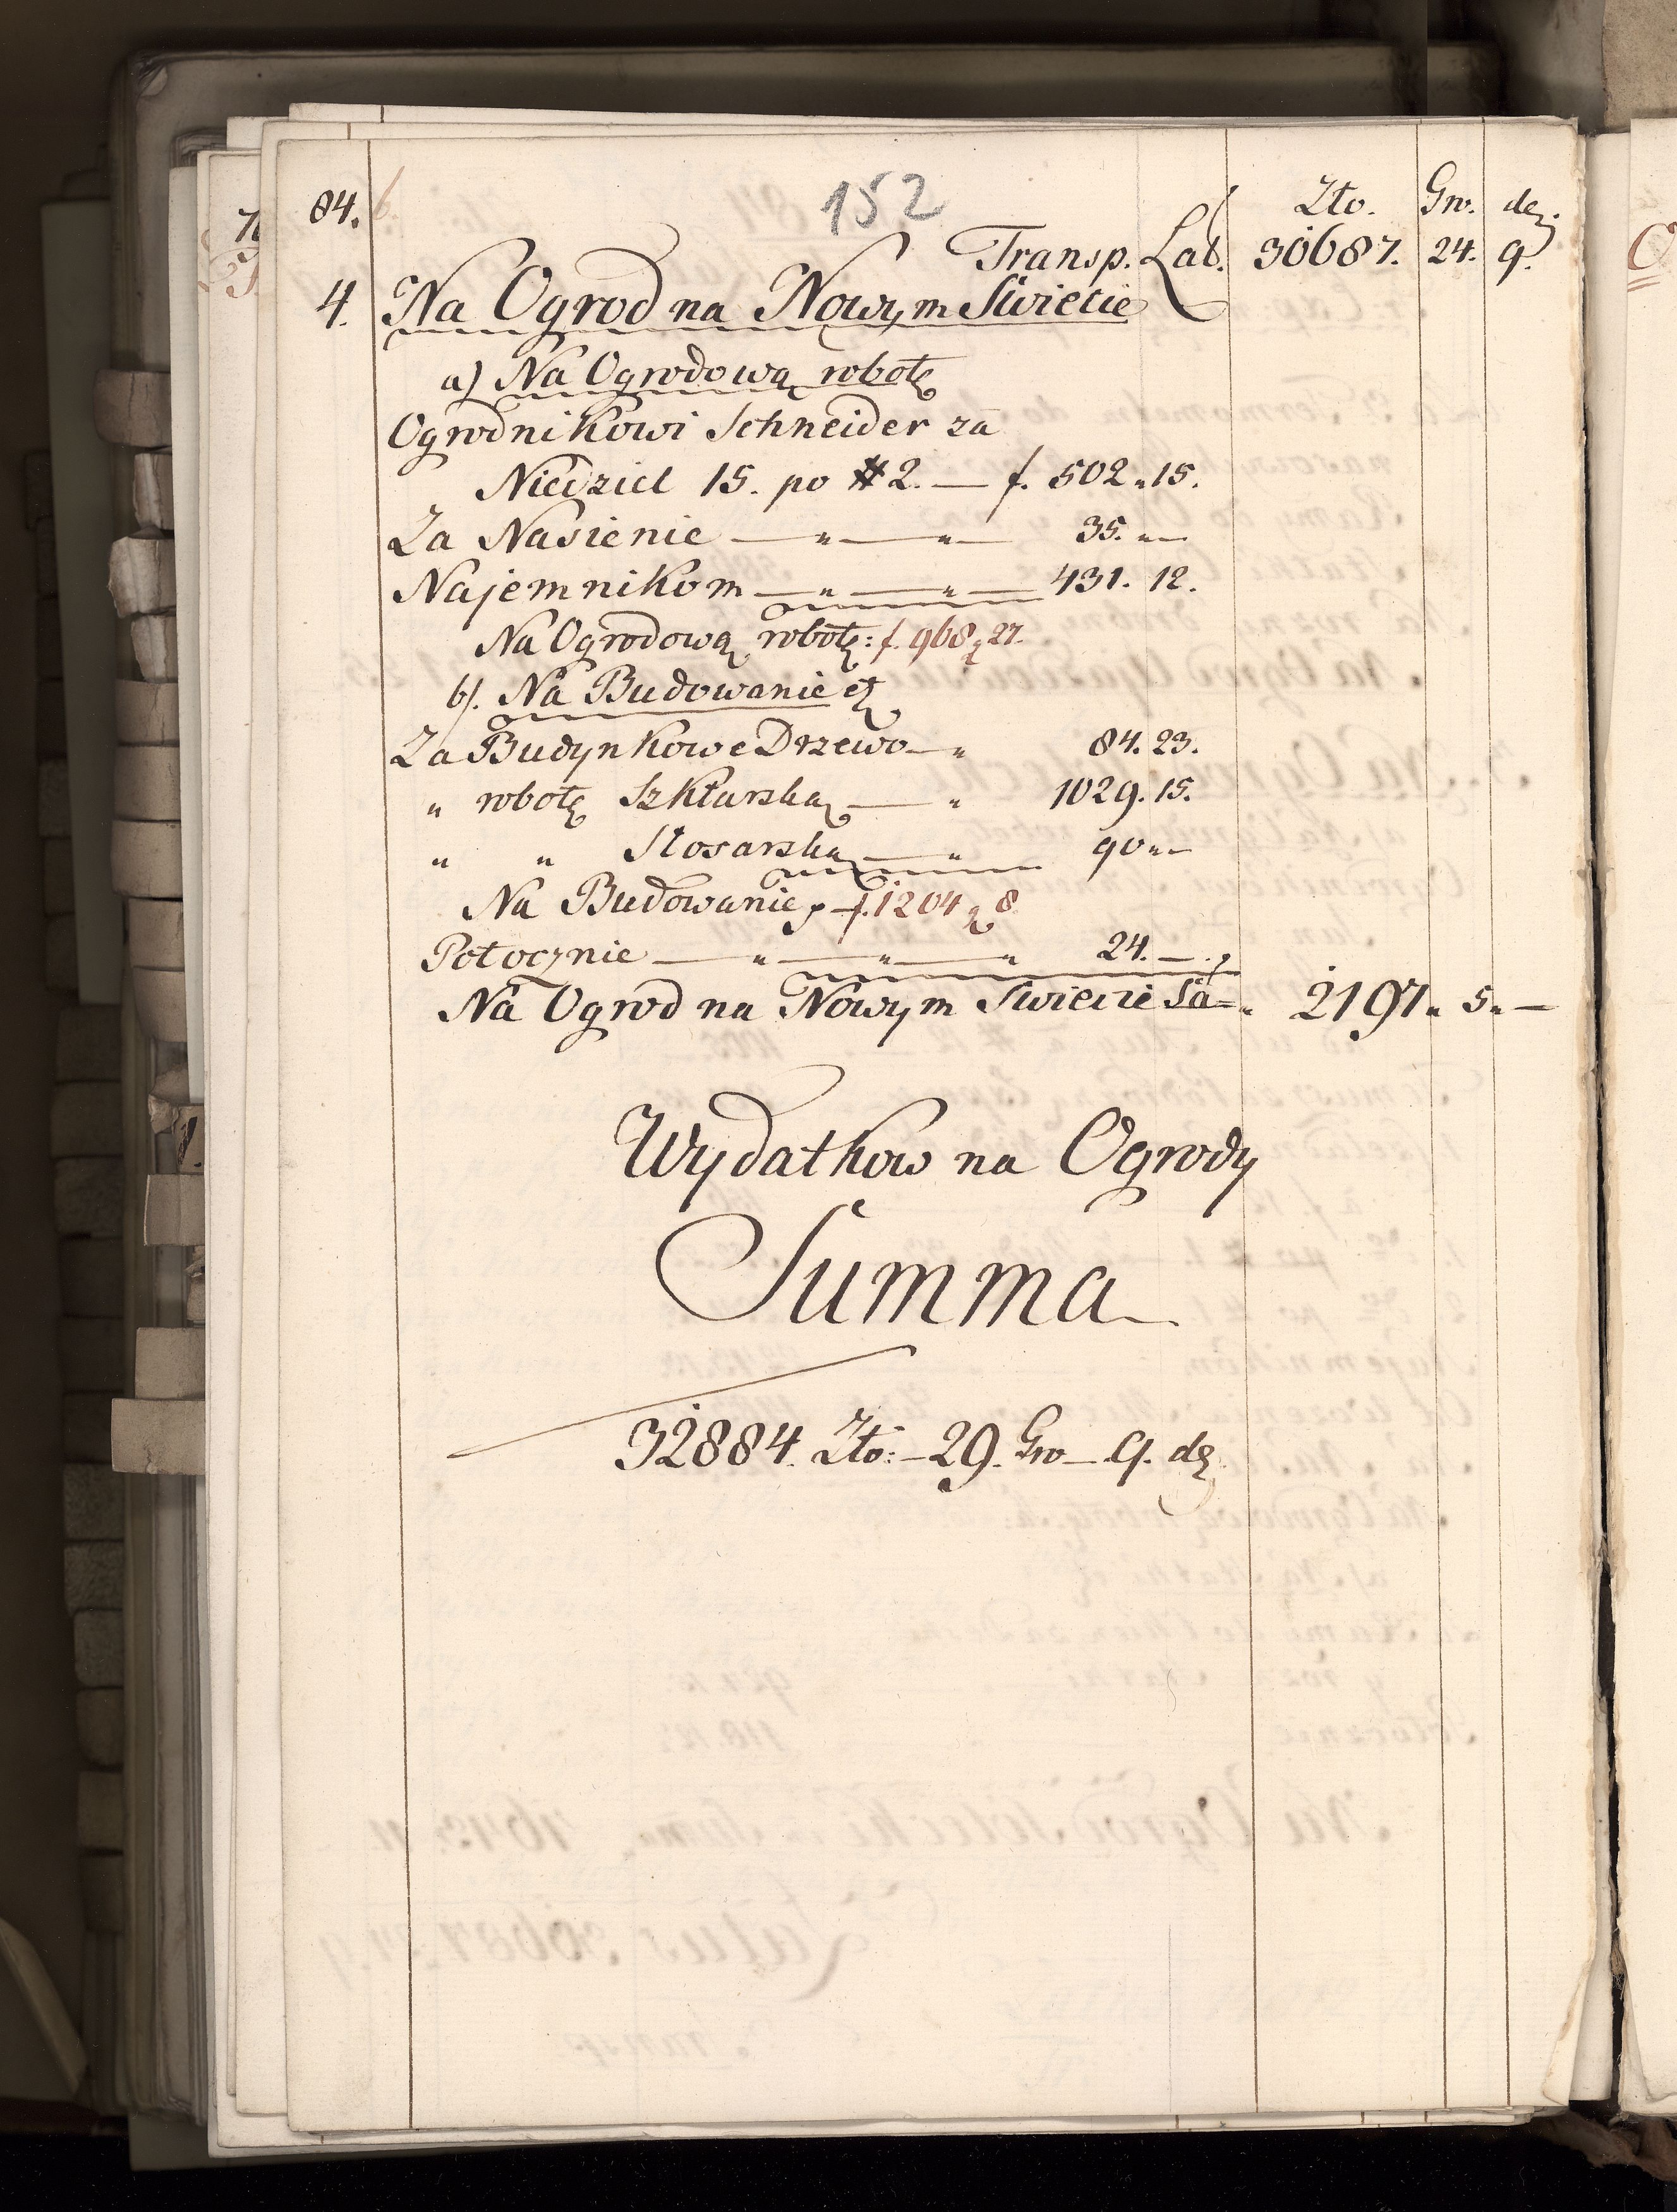 84.
152
Zło. Gro. de.
Transp. Lat. 30687. 24. 9.
4. Na Ogrod na Nowym Swiecie
a) Na Ogrodową robotę
Ogrodnikowi Schneider za
Niedziel 15. po # 2. — f. 502 „ 15.
Za Nasienie — „ — „ — 35. „ —
Najemnikom — „ — „ — 431. 12.
Na Ogrodową robotę: f. 968 g 27.
b). Na Budowanie
Za Budynkowe Drzewo — „ 84. 23.
„ robotę Szklarską — „ 1029. 15.
„ „ Slosarską — „ 90 „ —
Na Budowanie f. 1204 g 8
Potocznie — „ — „ — „ 24. —
Na Ogrod na Nowym Swiecie Sa= „ 2197 „ 5 „ —
Wydatkow na Ogrody
Summa
32884. Zło: — 29. Gro — 9. de